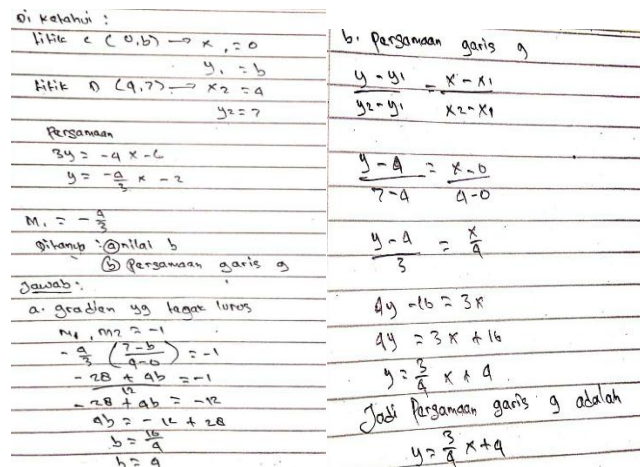 Di ketahui :
titik C ( 0,b) → x₁ = 0
y₁ = b
titik D (4,7) → x2 = 4
y2 = 7
Persamaan
3y = -4x - 6
y = -4/3 x - 2
M₁ = - 4/3
Ditanya : ⓐ nilai b
ⓑ Persamaan garis g
Jawab :
a. gradien yg tegak lurus
M1 . m2 = -1
- 4/3 ( 7-b / 4-0 ) = -1
- 28 + 4b / 12 = -1
- 28 + 4b = -12
4b = - 12 + 28
b = 16/4
b = 4
b. Persamaan garis g
y - y1 / y2 - y1 = x - x1 / x2 - x1
y - 4 / 7 - 4 = x - 0 / 4 - 0
y - 4 / 3 = x / 4
4y - 16 = 3x
4y = 3x + 16
y = 3/4 x + 4
Jadi Persamaan garis g adalah
y = 3/4 x + 4